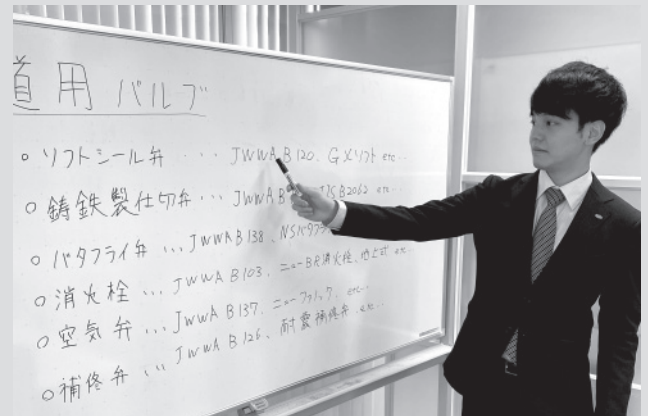 道用バルブ
○ソフトシール弁 ・・・ JWWA B 120、GXソフト etc…
○鋳鉄製仕切弁 ・・・ JWWA B JIS B2062 etc…
○バタフライ弁 … JWWA B 138、NSバタフラ
○消火栓 … JWWA B 103、ニューBR消火栓、地上式 etc…
○空気弁 … JWWA B 137、ニューファノック、etc…
○補修弁 … JWWA B 126、耐震補修弁、etc…